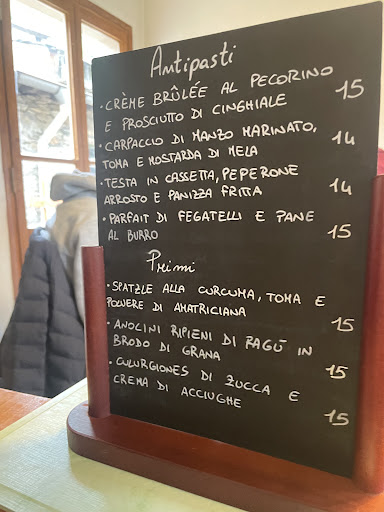 Antipasti
· CRÈME BRÛLÉE AL PECORINO
E PROSCIUTTO DI CINGHIALE 15
· CARPACCIO DI MANZO MARINATO,
TOMA E MOSTARDA DI MELA 14
· TESTA IN CASSETTA, PEPERONE
ARROSTO E PANIZZA FRITTA 14
· PARFAIT DI FEGATELLI E PANE
AL BURRO 15
Primi
· SPATZLE ALLA CURCUMA, TOMA E
POLVERE DI AMATRICIANA 15
· ANOLINI RIPIENI DI RAGÙ IN
BRODO DI GRANA 15
· CULURGIONES DI ZUCCA E
CREMA DI ACCIUGHE 15